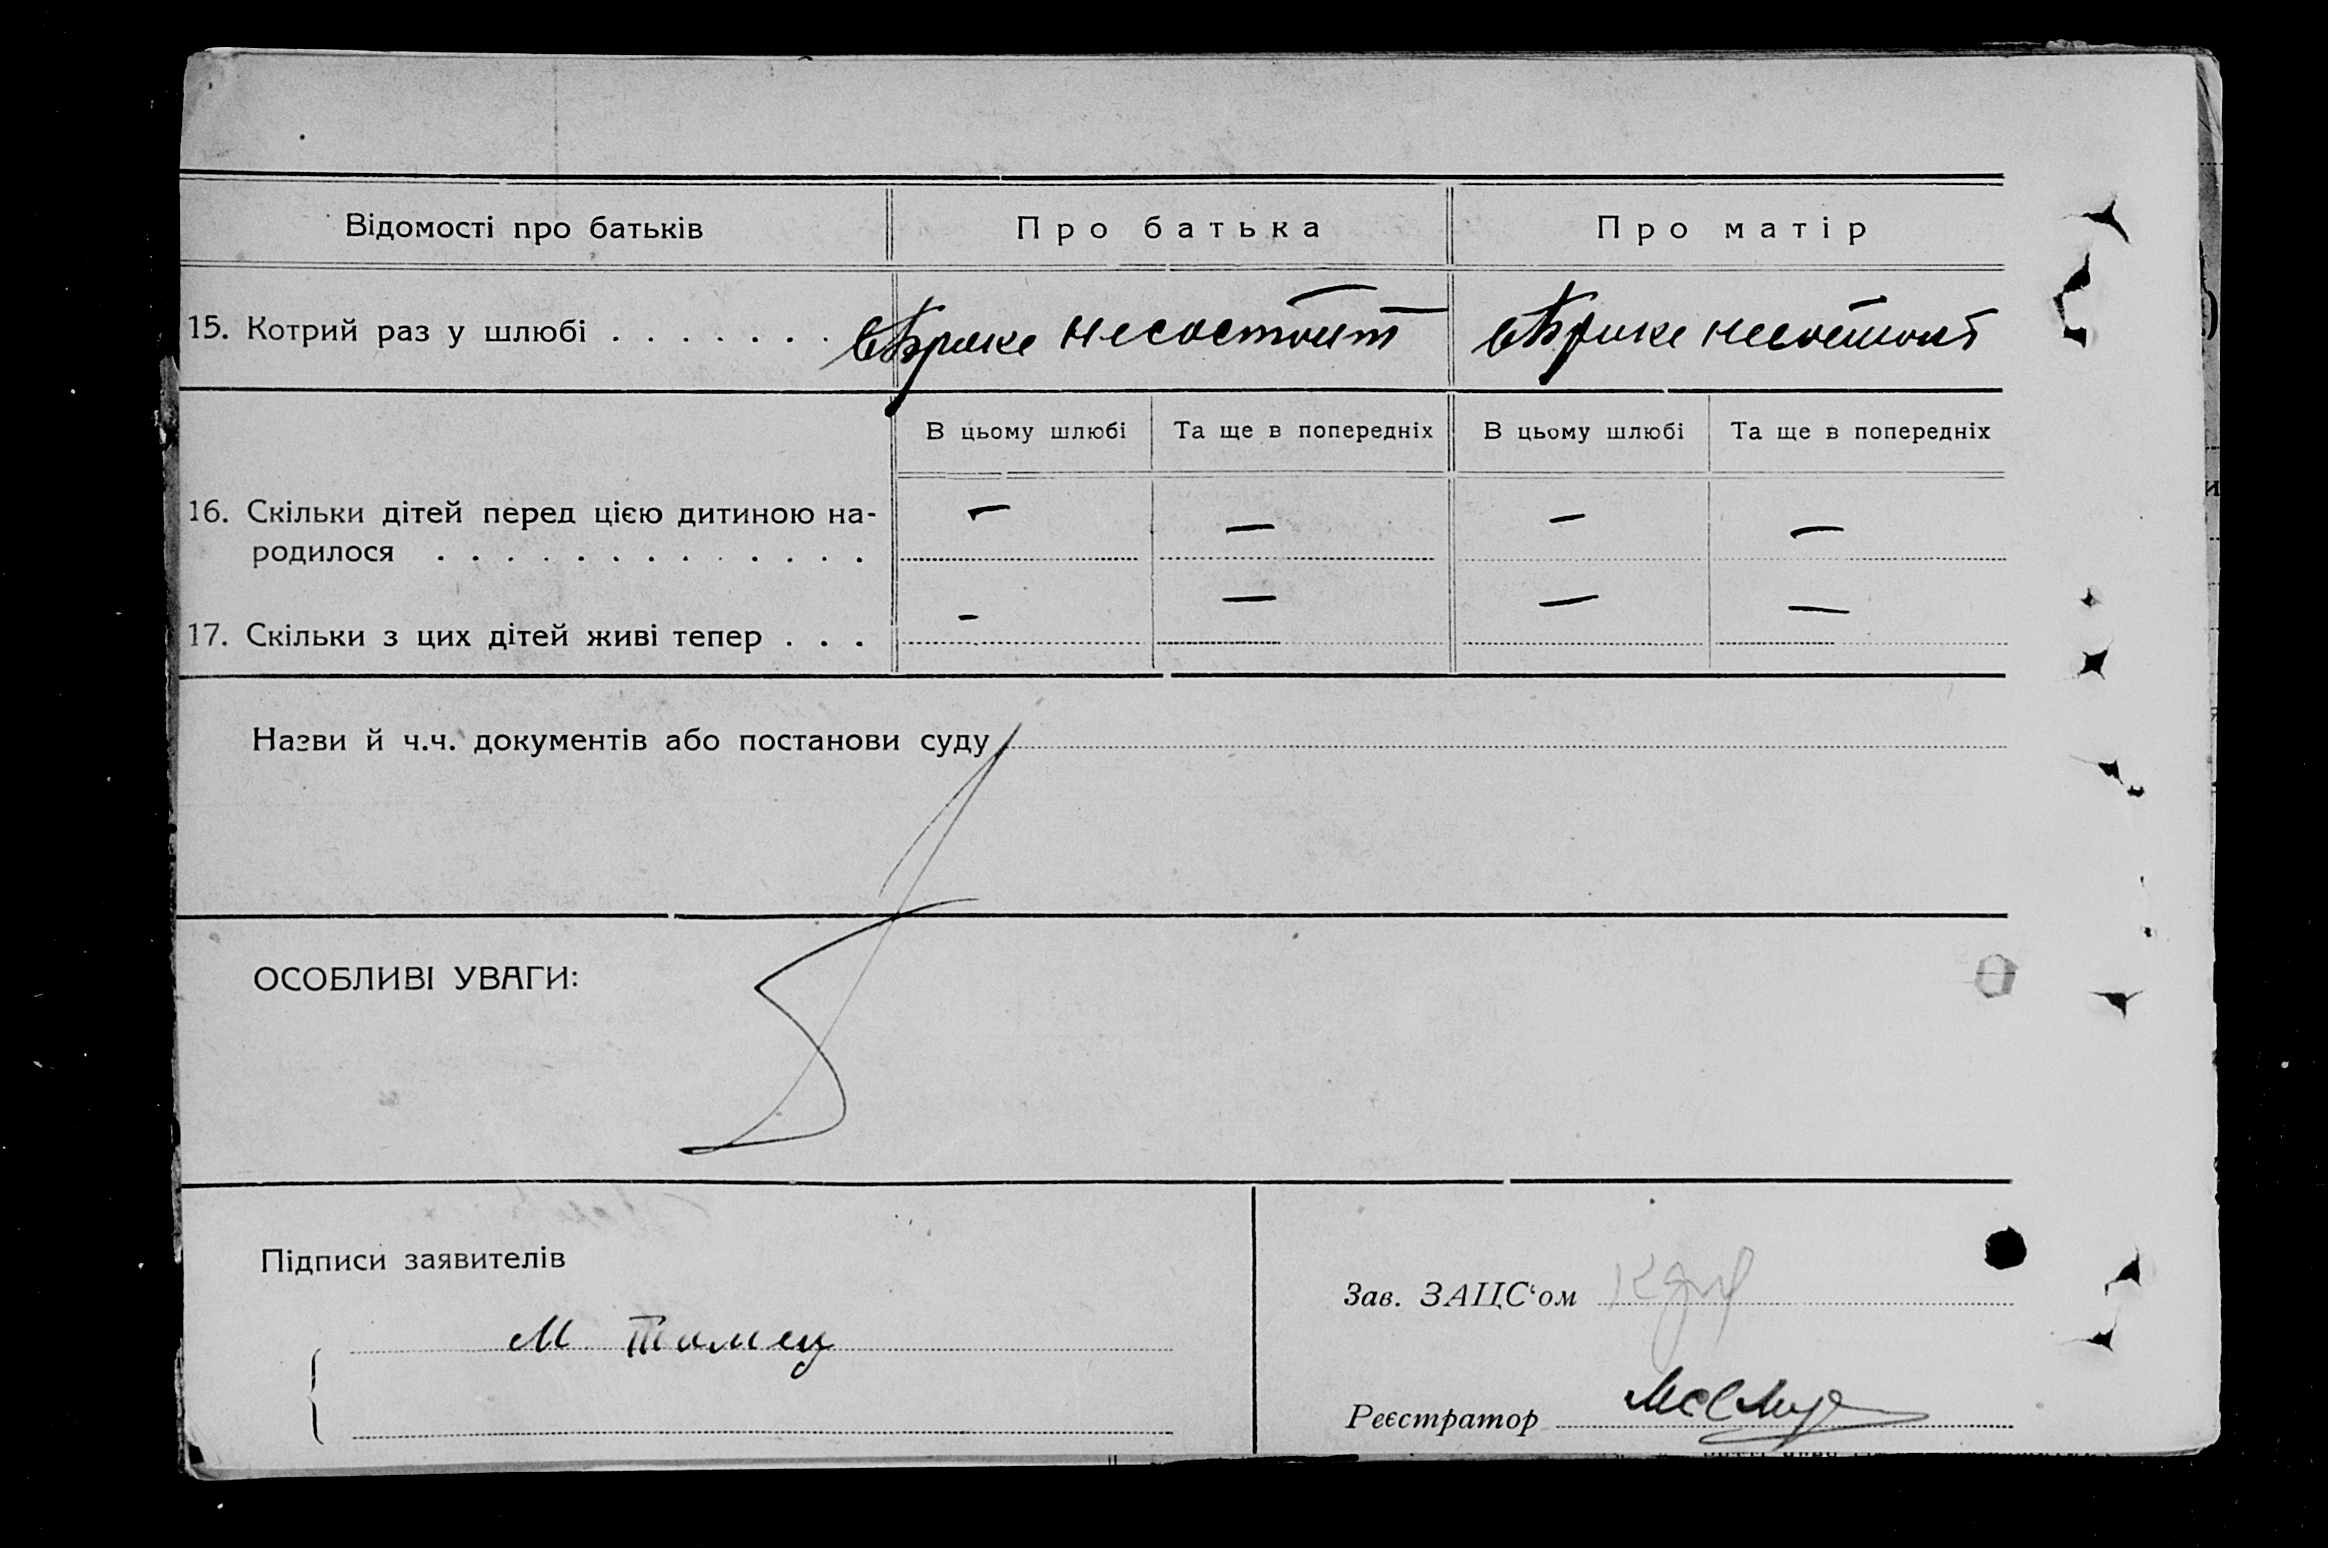 Відомості про батьків
Про батька
Про матір
15. Котрий раз у шлюбі . . . . . . .
вБраке несостоит
вБраке несостоит
В цьому шлюбі
Та ще в попередніх
В цьому шлюбі
Та ще в попередніх
16. Скільки дітей перед цією дитиною на-
— — — —
родилося . . . . . . . . . . . . .
17. Скільки з цих дітей живі тепер . . .
- — — —
Назви й ч.ч. документів або постанови суду
ОСОБЛИВІ УВАГИ:
Підписи заявителів
М
Зав. ЗАЦС‘ом
Реєстратор